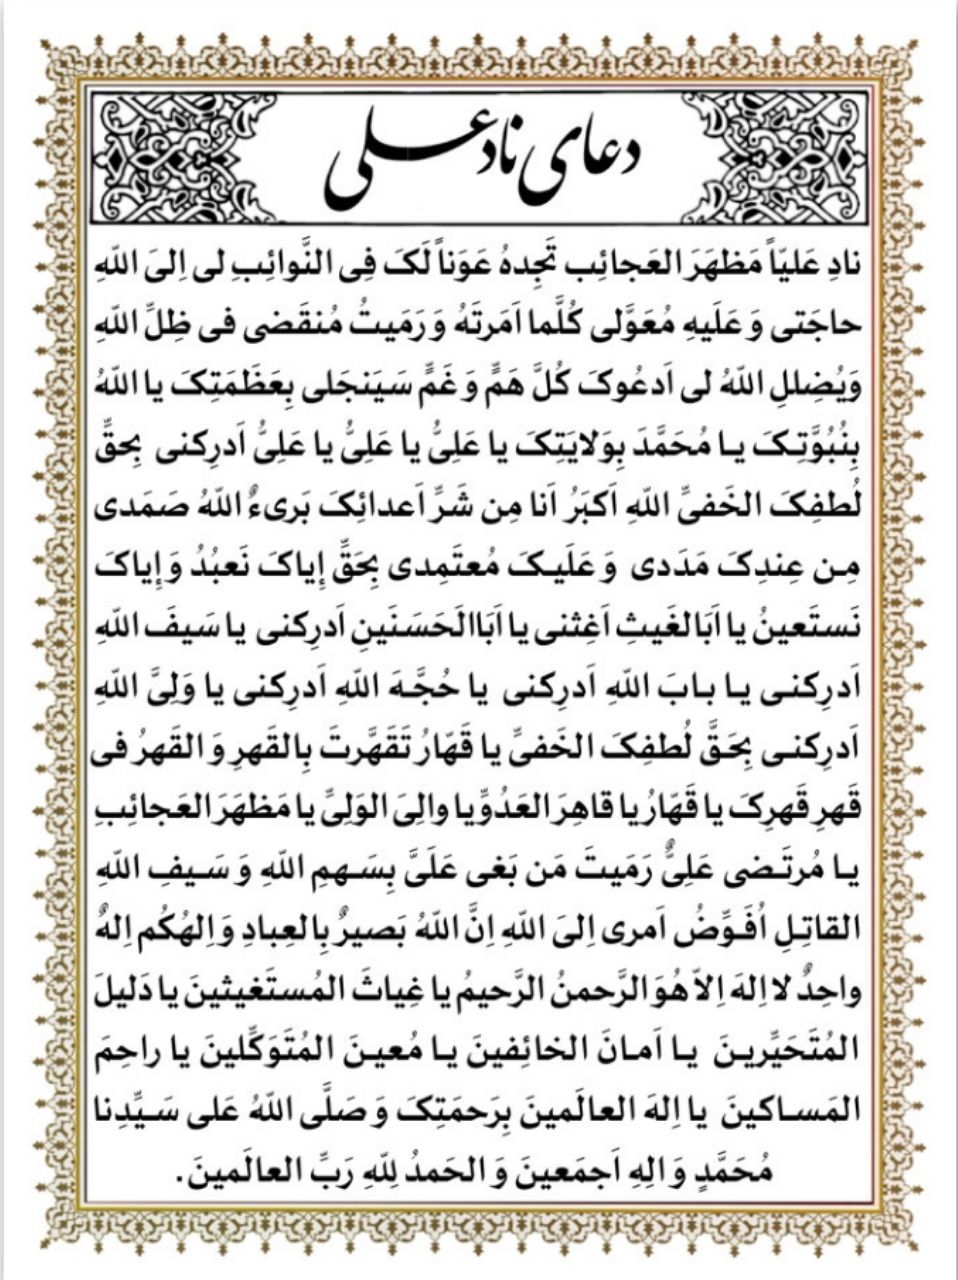 دعای ناد علی
نادِ عَلیّاً مَظهَرَ العَجائِب تَجِدهُ عَوَناً لَکَ فِی النَّوائِبِ لی اِلیَ اللّهِ
حاجَتی وَ عَلَیهِ مُعَوَّلی کُلَّما اَمَرتَهُ وَ رَمَیتُ مُنقَضی فی ظِلِّ اللّهِ
وَیُضِللِ اللّهُ لی اَدعُوکَ کُلَّ هَمٍّ وَ غَمٍّ سَیَنجَلی بِعَظَمَتِکَ یا اللّهُ
بِنُبُوَّتِکَ یا مُحَمَّدَ بِوَلایَتِکَ یا عَلِیُّ یا عَلِیُّ یا عَلِیُّ اَدرِکنی بِحقِّ
لُطفِکَ الخَفیِّ اللّهِ اَکبَرُ اَنا مِن شَرِّ اَعدائِکَ بَریءٌ اللّهُ صَمَدی
مِن عِندِکَ مَدَدی وَ عَلَیکَ مُعتَمِدی بِحَقِّ إیاکَ نَعبُدُ وَ إیاکَ
نَستَعینُ یا اَبَا لغَیثِ اَغِثنی یا اَبَاالَحَسَنَینِ اَدرِکنی یا سَیفَ اللّهِ
اَدرِکنی یا بابَ اللّهِ اَدرِکنی یا حُجَّهَ اللّهِ اَدرِکنی یا وَلِیَّ اللّهِ
اَدرِکنی بِحَقَّ لُطفِکَ الخَفیِّ یا قَهّارُ تَقَهَّرتَ بِالقَهرِ وَ القَهرُ فی
قَهرِ قَهرِکَ یا قَهّارُ یا قاهِرَ العَدُوِّ یا والِیَ الوَلِیِّ یا مَظهَرَ العَجائِبِ
یا مُرتَضی عَلِیٌّ رَمَیتَ مَن بَغی عَلَیَّ بِسَهمِ اللّهِ وَ سَیفِ اللّهِ
القاتِلِ اُفَوِّضُ اَمری اِلیَ اللّهِ اِنَّ اللّهُ بَصیرٌ بِالعِبادِ وَ اِلهُکُم اِلهٌ
واحِدٌ لا اِلهَ اِلاّ هُوَ الرَّحمنُ الرَّحیمُ یا غِیاثَ المُستَغیثینَ یا دَلیلَ
المُتَحَیِّرینَ یا اَمانَ الخائِفینَ یا مُعینَ المُتَوَکِّلینَ یا راحِمَ
المَساکینَ یا اِلهَ العالَمینَ بِرَحمَتِکَ وَ صَلَّی اللّهُ عَلی سَیِّدِنا
مُحَمَّدٍ وَ الِهِ اَجمَعینَ وَ الحَمدُ لِلّهِ رَبِّ العالَمینَ.